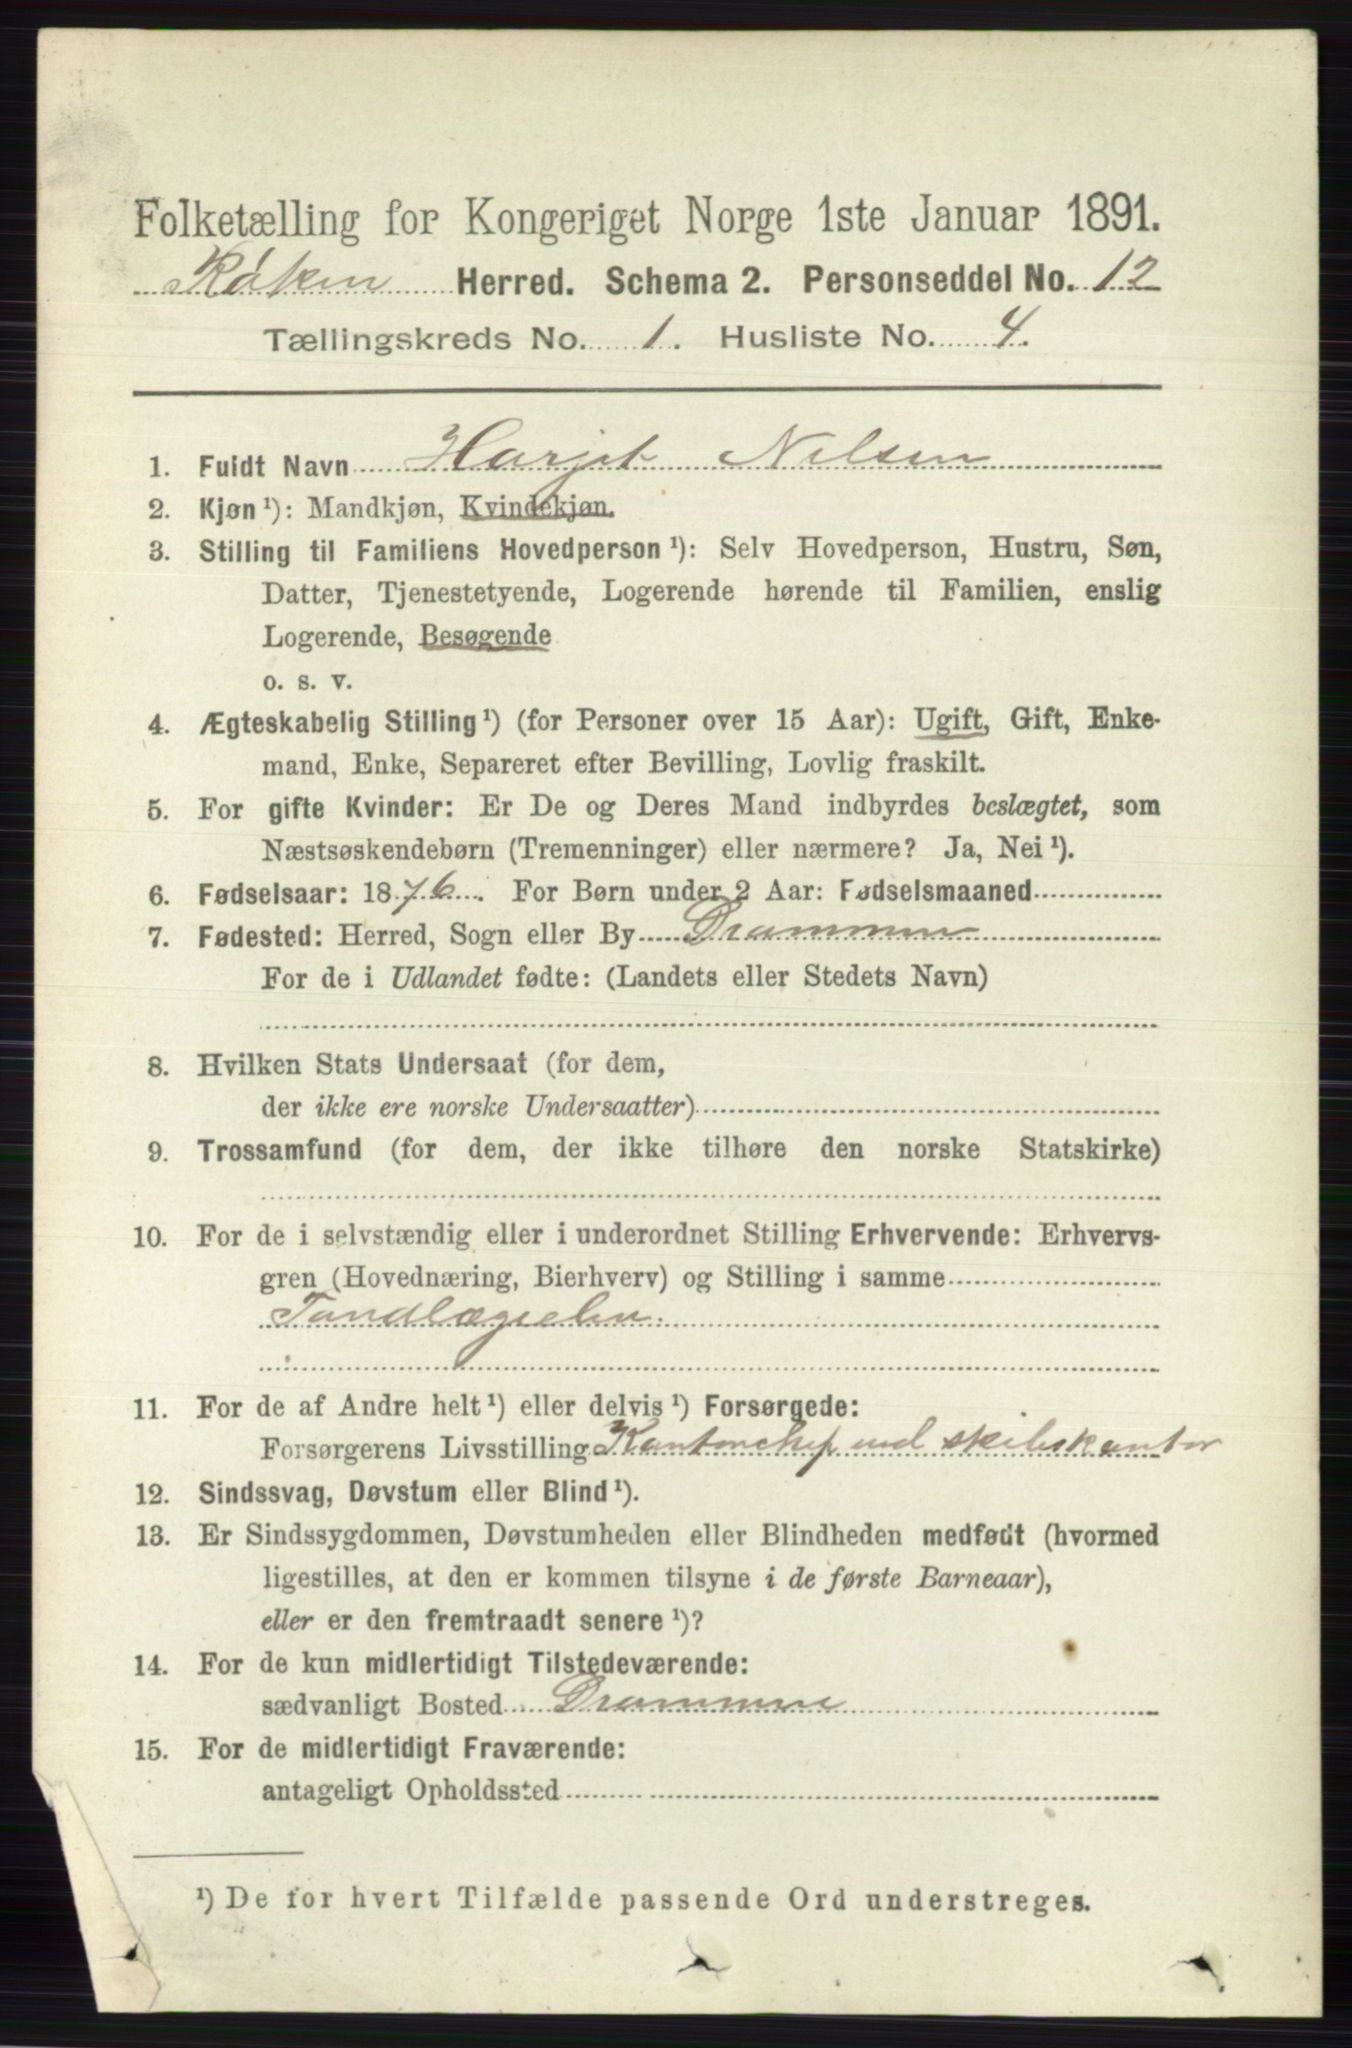 Folketælling for Kongeriget Norge 1ste Januar 1891.
Røken Herred. Schema 2. Personseddel No. 12
Tællingskreds No. 1. Husliste No. 4.
1. Fuldt Navn Harjet Nilsen
2. Kjøn ¹): Mandkjøn, Kvindekjøn.
3. Stilling til Familiens Hovedperson ¹): Selv Hovedperson, Hustru, Søn,
Datter, Tjenestetyende, Logerende hørende til Familien, enslig
Logerende, Besøgende
o. s. v.
4. Ægteskabelig Stilling ¹) (for Personer over 15 Aar): Ugift, Gift, Enke-
mand, Enke, Separeret efter Bevilling, Lovlig fraskilt.
5. For gifte Kvinder: Er De og Deres Mand indbyrdes beslægtet, som
Næstsøskendebørn (Tremenninger) eller nærmere? Ja, Nei ¹).
6. Fødselsaar: 1876. For Børn under 2 Aar: Fødselsmaaned
7. Fødested: Herred, Sogn eller By Drammen
For de i Udlandet fødte: (Landets eller Stedets Navn)
8. Hvilken Stats Undersaat (for dem,
der ikke ere norske Undersaatter)
9. Trossamfund (for dem, der ikke tilhøre den norske Statskirke)
10. For de i selvstændig eller i underordnet Stilling Erhvervende: Erhvervs-
gren (Hovednæring, Bierhverv) og Stilling i samme
Tandlægeelev.
11. For de af Andre helt ¹) eller delvis ¹) Forsørgede:
Forsørgerens Livsstilling Kontorchef ved skibskontor
12. Sindssvag, Døvstum eller Blind ¹).
13. Er Sindssygdommen, Døvstumheden eller Blindheden medfødt (hvormed
ligestilles, at den er kommen tilsyne i de første Barneaar),
eller er den fremtraadt senere ¹)?
14. For de kun midlertidigt Tilstedeværende:
sædvanligt Bosted Drammen
15. For de midlertidigt Fraværende:
antageligt Opholdssted
¹) De for hvert Tilfælde passende Ord understreges.